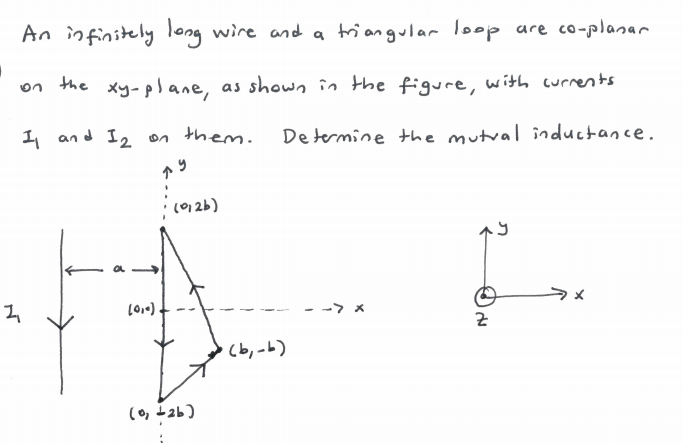 An infinitely long wire and a triangular loop are co-planar
on the xy-plane, as shown in the figure, with currents
I1 and I2 on them. Determine the mutual inductance.
y
(0,2b)
y
a
I1
(0,0)
x
x
z
(b,-b)
(0,-2b)